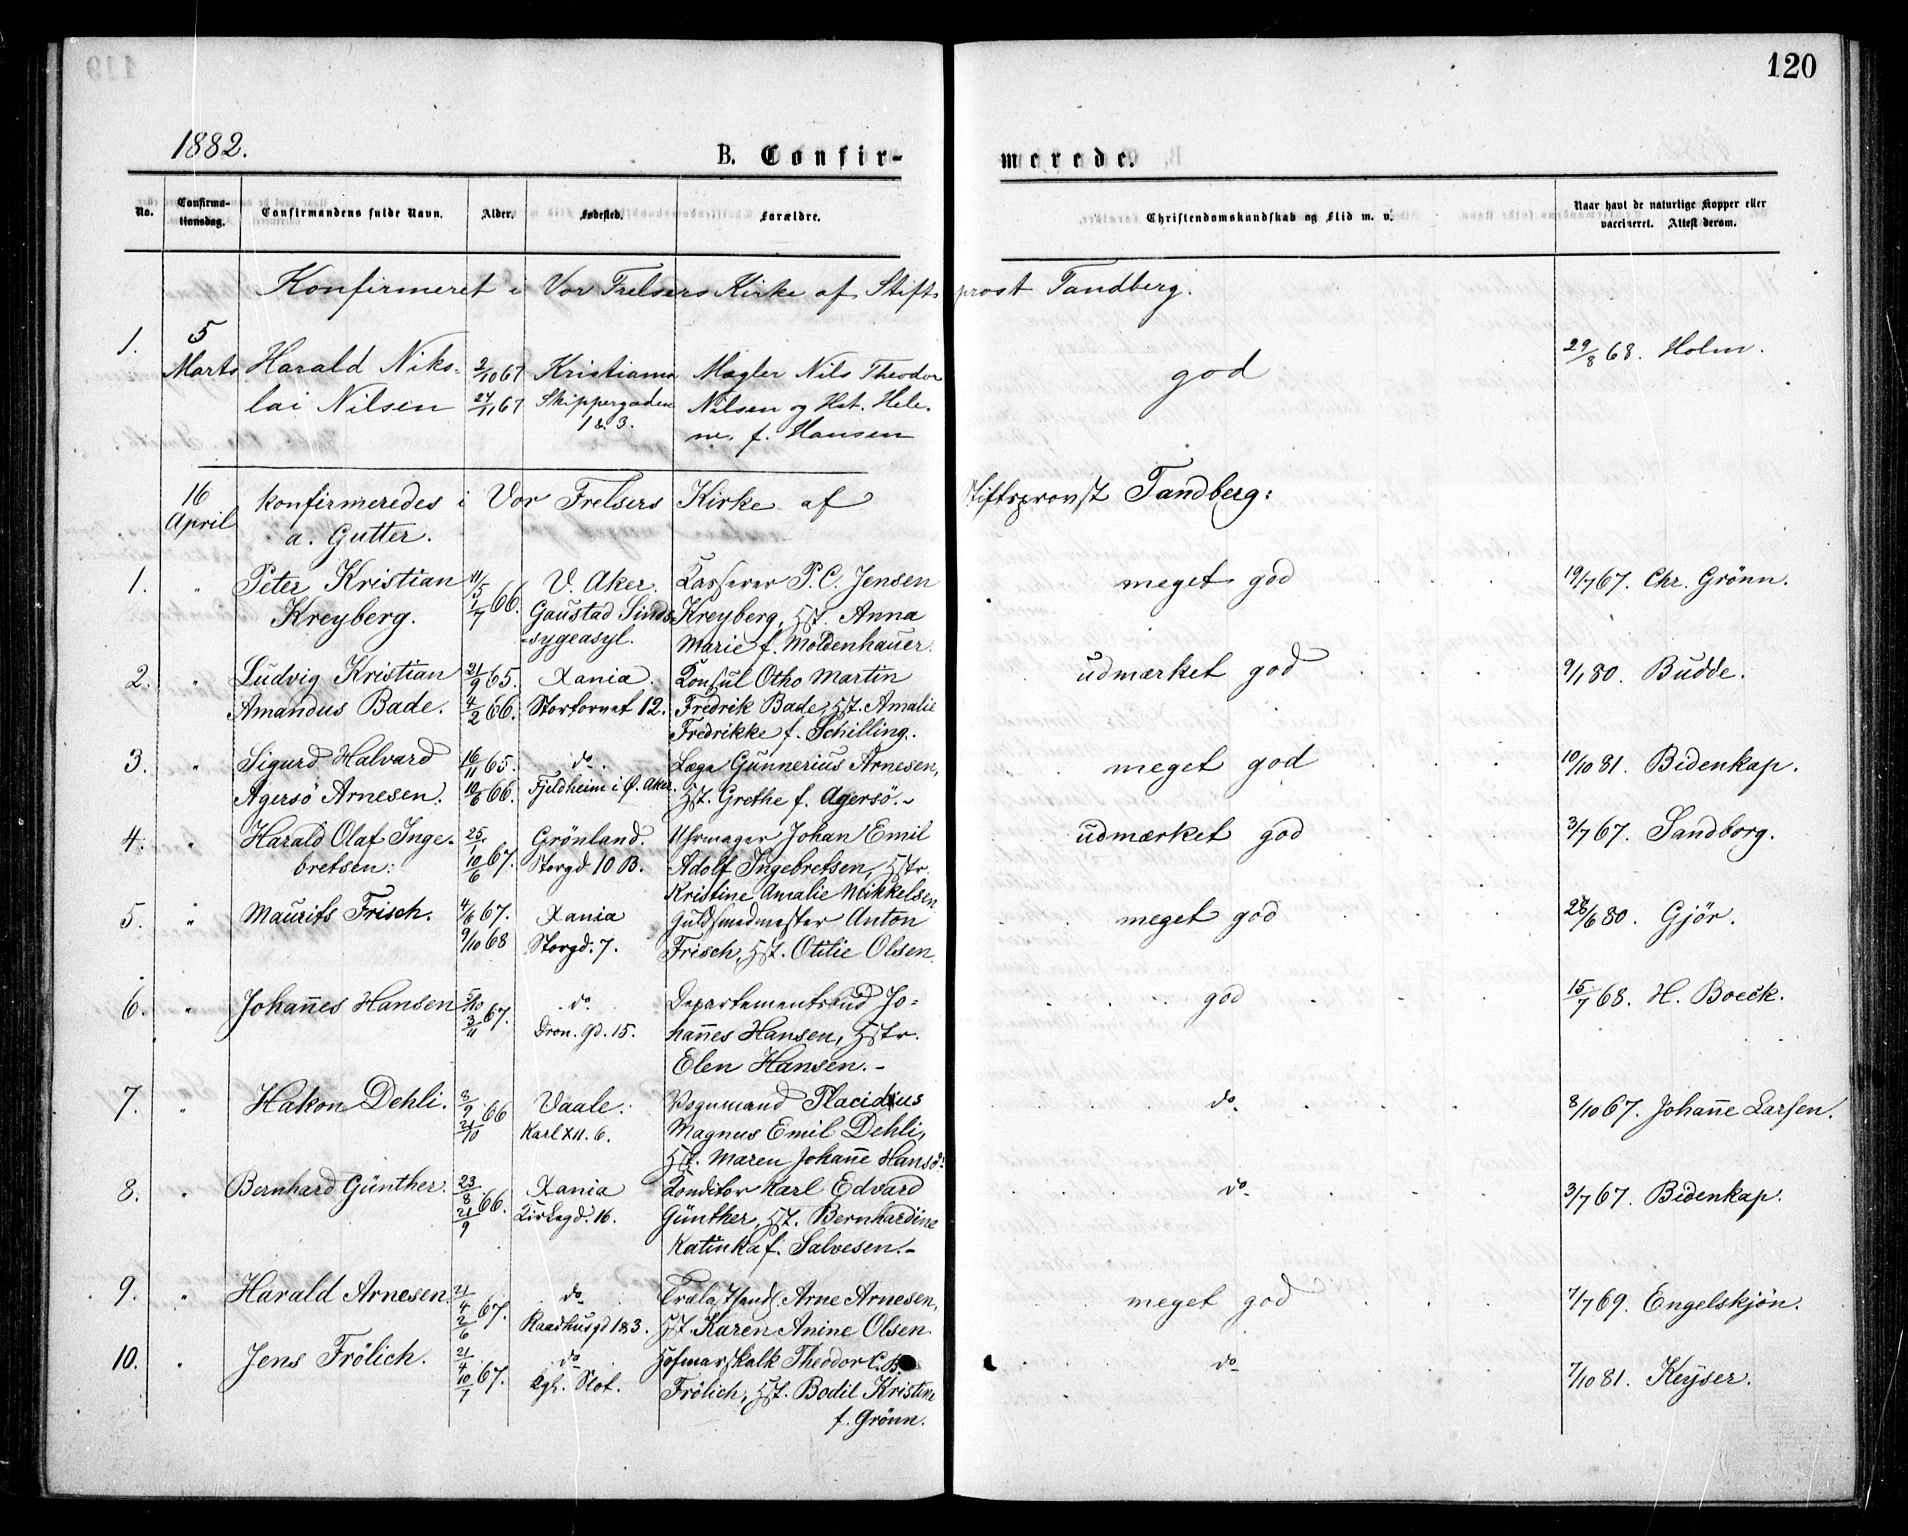 120
1882.
B. Confir-
merede.
No.
Confirma-
tionsdag.
Confirmandens fulde Navn.
Alder.
Fødested.
Forældre.
Christendomskundskab og Flid m. v.
Naar havt de naturlige Kopper eller
vaccineret. Attest derom.
Konfirmeret i Vor Frelsers Kirke af Stiftsprost Tandberg.
1. 5 Marts Harald Niko-
lai Nilsen
2/10 67
24/11 67
Kristiania
Skippergaden
1 & 3.
Mægler Nils Theodor
Nilsen og Hst. Hele-
ne f. Hansen
god
29/8 68. Holm.
16 April konfirmeredes i Vor Frelsers Kirke af Stiftsprovst Tandberg:
a. Gutter.
1. " Peter Kristian
Kreyberg.
11/5 1/7 66.
V. Aker.
Gaustad Sinds-
sygeasyl.
Kasserer P. C. Jensen
Kreyberg, Hst. Anna
Marie f. Moldenhauer.
meget god
19/7 67. Chr. Grönn.
2. " Ludvig Kristian
Amandus Bade.
21/9 65.
4/2 66.
Xania.
Stortorvet 12.
Konsul Otho Martin
Fredrik Bade, Hst. Amalie
Fredrikke f. Schilling.
udmærket god
9/1 80. Budde.
3. " Sigurd Halvard
Agersö Arnesen.
16/11 65.
10/6 66.
do.
Fjeldheim i Ø. Aker.
Læge Gunnerius Arnesen,
Hst. Grethe f. Agersö.
meget god
10/10 81. Bidenkap.
4. " Harald Olaf Inge-
bretsen.
25/1 10/6 67.
Grönland.
Storgd 10 B.
Uhrmager Johan Emil
Adolf Ingebretsen, Hstr.
Kristine Amalie Mikkelsen
udmærket god
3/7 67. Sandborg.
5. " Maurits Frisch.
4/6 67.
9/10 68
Xania
Storgd. 7.
Guldsmedmester Anton
Frisch, Hst. Otilie Olsen.
meget god
28/6 80. Gjör.
6. " Johannes Hansen
5/10 3/11 67.
do
Dron. gd. 15.
Departementsbud Jo-
hannes Hansen, Hstr.
Elen Hansen.
god
15/7 68. H. Boeck.
7. " Hakon Dehli.
8/9 21/10 66
Vaale.
Karl XII. 6.
Vognmand Placidius
Magnus Emil Dehli,
Hst. Maren Johanne Hansd.
do
8/10 67. Johanne Larsen.
8. " Bernhard Günther.
23/8 21/9 66.
Xania
Kirkegd. 16.
Konditor Karl Edvard
Günther, Hst. Bernhardine
Katinka f. Salvesen.
do
3/7 67. Bidenkap.
9. " Harald Arnesen.
21/4 2/6 67.
do
Raadhusgd 1&3.
Trælasthandl. Arne Arnesen,
Hst. Karen Anine Olsen.
meget god
7/7 69. Engelskjön.
10. " Jens Frölich.
21/4 10/7 67.
do
Kgl. Slot.
Hofmarskalk Theodor C. B.
Frölich, Hst. Bodil Kristine
f. Grönn.
do
7/10 81. Keyser.